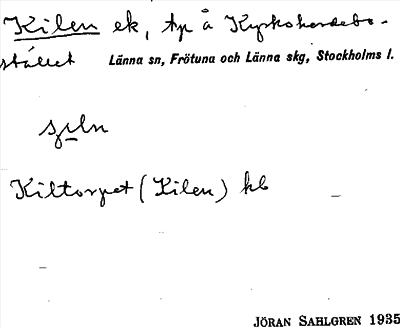 Kilen ek, tp å Kyrkoherdebo-
stället Länna sn, Frötuna och Länna skg, Stockholms l.
Kiltorpet (Kilen) kb
JÖRAN SAHLGREN 1935